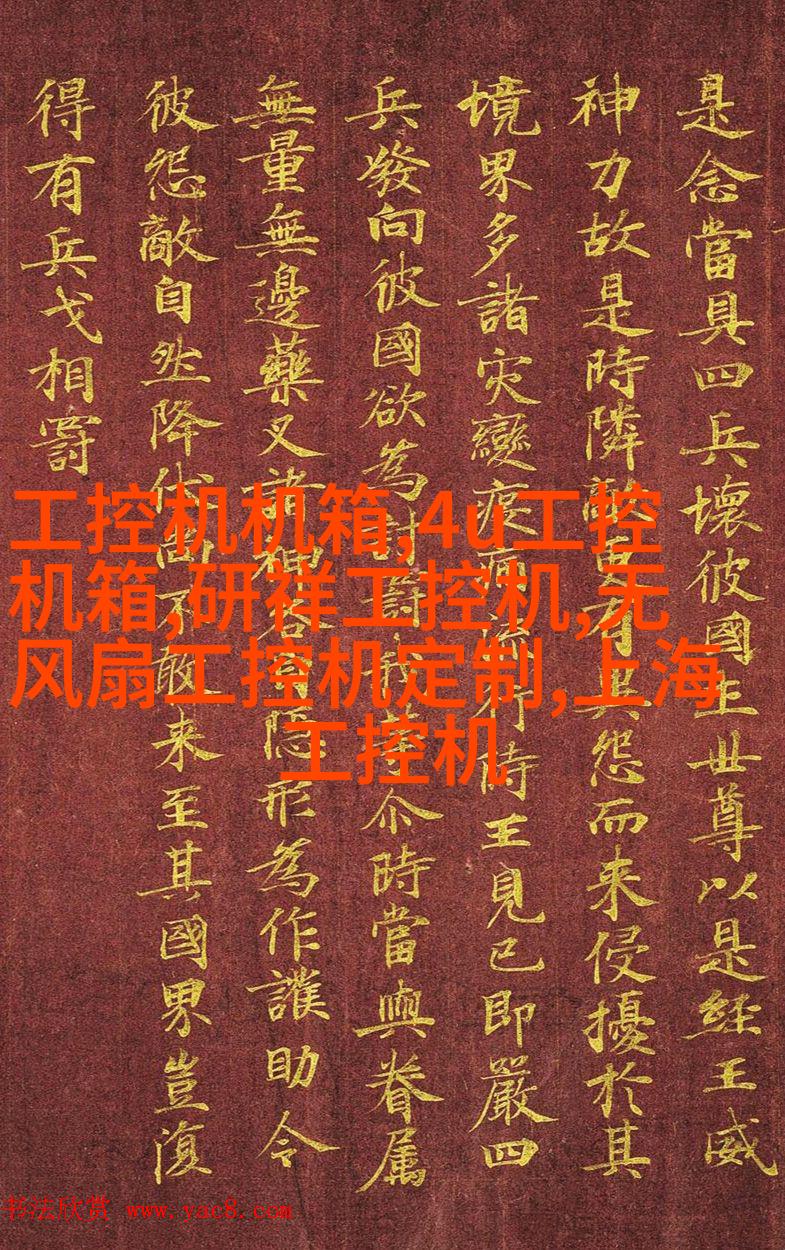 是念當具四兵壞彼國王世尊以是経王威
神力故是時隣敵更有異怨而来侵擾於其
境界多諸灾變疫病流行時王見已即嚴四
兵發向彼國欲為討罸我等尒時當與眷属
無量無邊藥叉諸神各自隠形為作護助令
彼怨敵自然降伏尚不敢来至其國界豈復
得有兵戈相罸
工控机机箱,4u工控
机箱,研祥工控机,无
风扇工控机定制,上海
工控机
书法欣赏 www.yac8.com